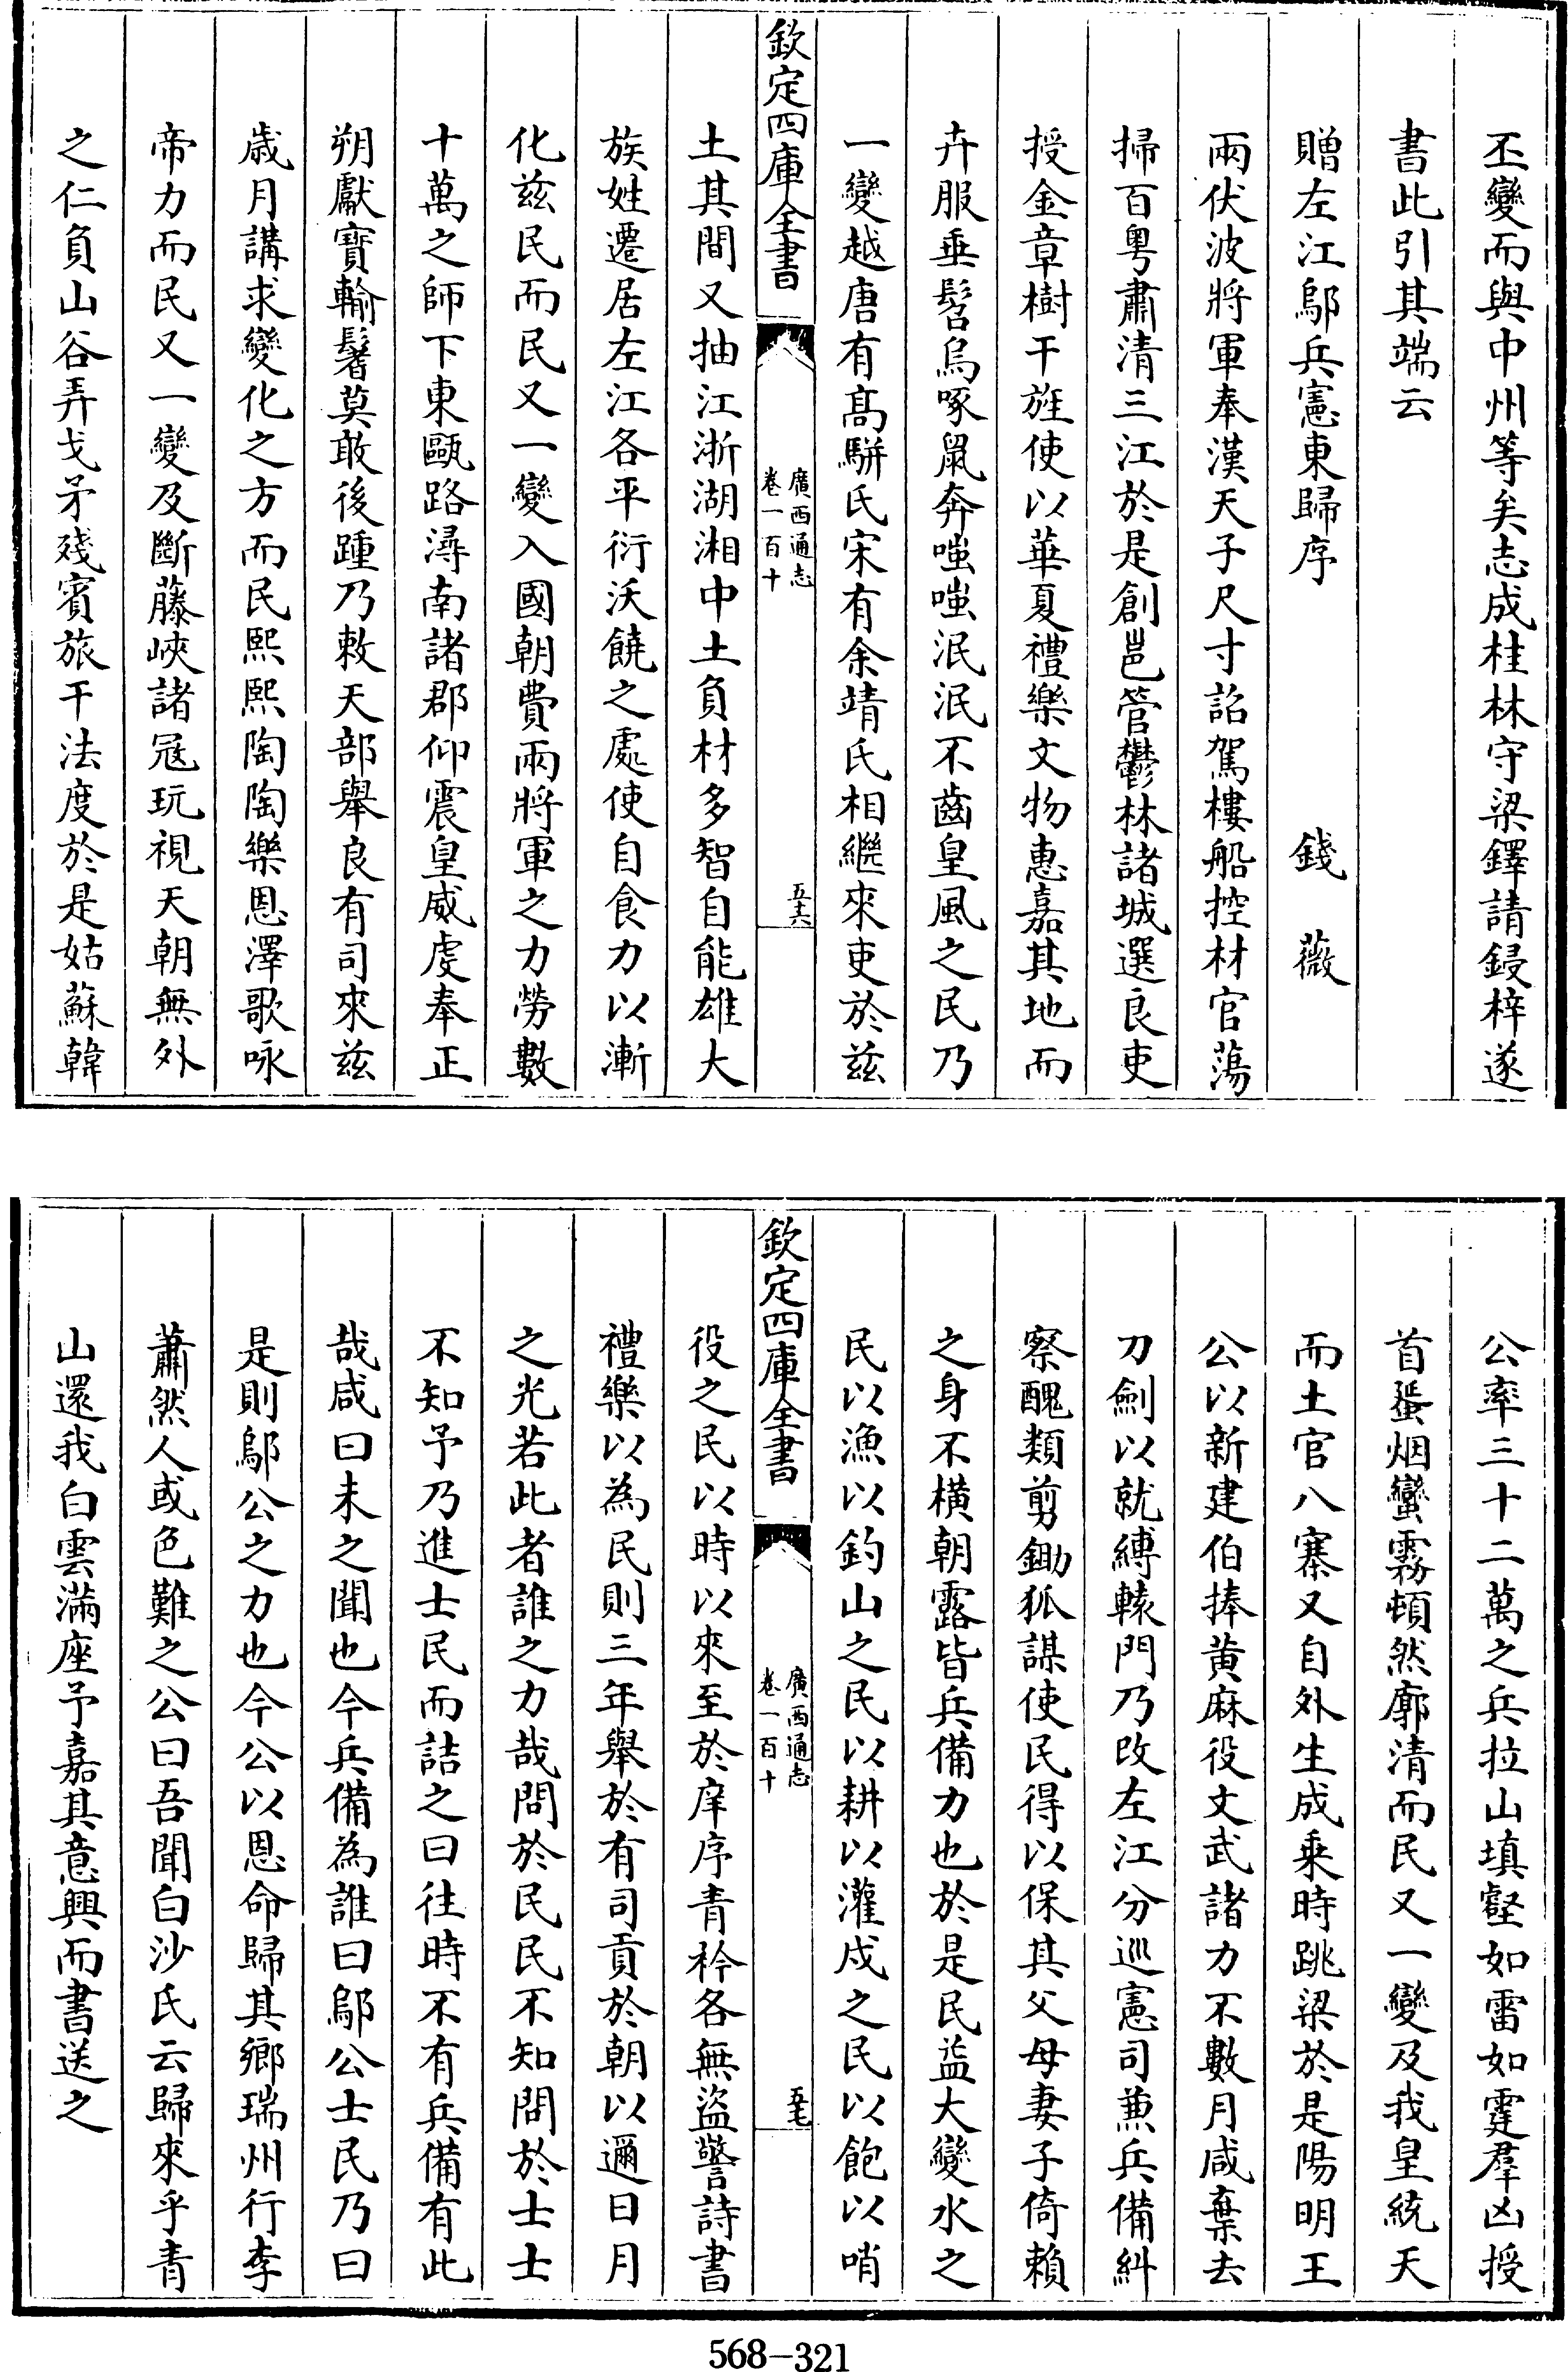 丕變而與中州等矣志成桂林守梁鐸請鋟梓遂
書此引其端云
贈左江鄔兵憲東歸序　錢薇
兩伏波將軍奉漢天子尺寸詔駕樓船控材官蕩
掃百粤肅清三江於是創邕管鬱林諸城選良吏
授金章樹干旌使以華夏禮樂文物惠嘉其地而
卉服垂髫烏啄鼠奔嗤嗤泯泯不齒皇風之民乃
一變越唐有髙駢氏宋有余靖氏相繼來吏於兹
欽定四庫全書
廣西通志
卷一百十
五六
土其間又抽江浙湖湘中土負材多智自能雄大
族姓遷居左江各平衍沃饒之處使自食力以漸
化兹民而民又一變入國朝費兩將軍之力勞數
十萬之師下東甌路潯南諸郡仰震皇威虔奉正
朔獻寳輸鬐莫敢後踵乃敕天部舉良有司來兹
歳月講求變化之方而民熙熙陶陶樂恩澤歌咏
帝力而民又一變及斷藤峽諸冦玩視天朝無外
之仁負山谷弄戈矛殘賓旅干法度於是姑蘇韓
公率三十二萬之兵拉山填壑如雷如霆羣凶授
首蜑烟蠻霧頓然廓清而民又一變及我皇統天
而土官八寨又自外生成乗時跳梁於是陽明王
公以新建伯捧黄麻役文武諸力不數月咸棄去
刀劍以就縛轅門乃改左江分巡憲司兼兵備糾
察醜類剪鋤狐謀使民得以保其父母妻子倚賴
之身不橫朝露皆兵備力也於是民益大變水之
民以漁以釣山之民以耕以灌戍之民以飽以哨
欽定四庫全書
廣西通志
卷一百十
五七
役之民以時以來至於庠序青衿各無盜警詩書
禮樂以為民則三年舉於有司貢於朝以邇日月
之光若此者誰之力哉問於民民不知問於士士
不知予乃進士民而詰之曰往時不有兵備有此
哉咸曰未之聞也今兵備為誰曰鄔公士民乃曰
是則鄔公之力也今公以恩命歸其鄉瑞州行李
蕭然人或色難之公曰吾聞白沙氏云歸來乎青
山還我白雲滿座予嘉其意興而書送之
568-321